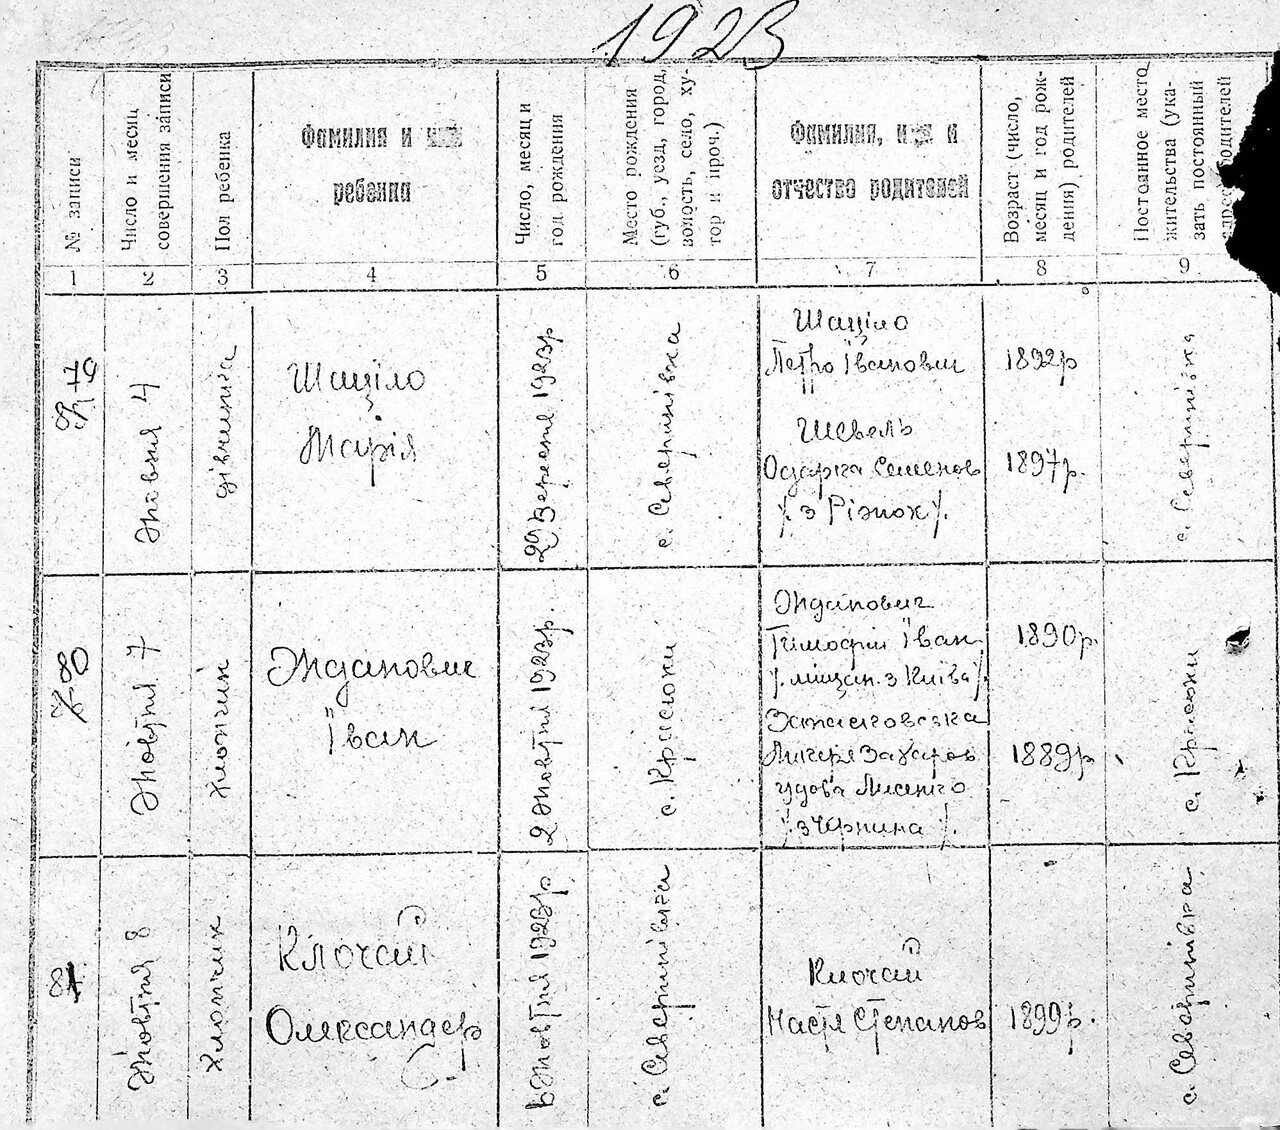 1923
№ записи
Число и месяц
совершения записи
Пол ребенка
Фамилия и имя
ребенка
Число, месяц и
год рождения
Место рождения
(губ., уезд, город,
волость, село, ху-
тор и проч.)
Фамилия, имя и
отчество родителей
Возраст (число,
месяц и год рож-
дения) родителей
Постоянное место
жительства (ука-
зать постоянный
адрес родителей
1 2 3 4 5 6 7 8 9
79
Жовтня 4
дівчинка
Шаціло
Марія
29 Вересня 1923р
с. Северинівка
Шаціло
Петро Іванович
Шевель
Одарка Семенов
/. з Ріжок /.
1892р
1897р.
с. Северинівка
80
Жовтня 7
хлопчик
Жданович
Іван
2 Жовтня 1923р.
с. Красюки
Жданович
Тимофій Іван.
/. міщан. з Київа /.
Захаров
удова Лисенко
/. з /.
1890р.
1889р
с. Красюки
81
Жовтня 8
хлопчик
Клочай
Олександер
Жовтня 1923р
с. Северинівка
Клочай
Настя Степанов
1899р.
с. Северинівка